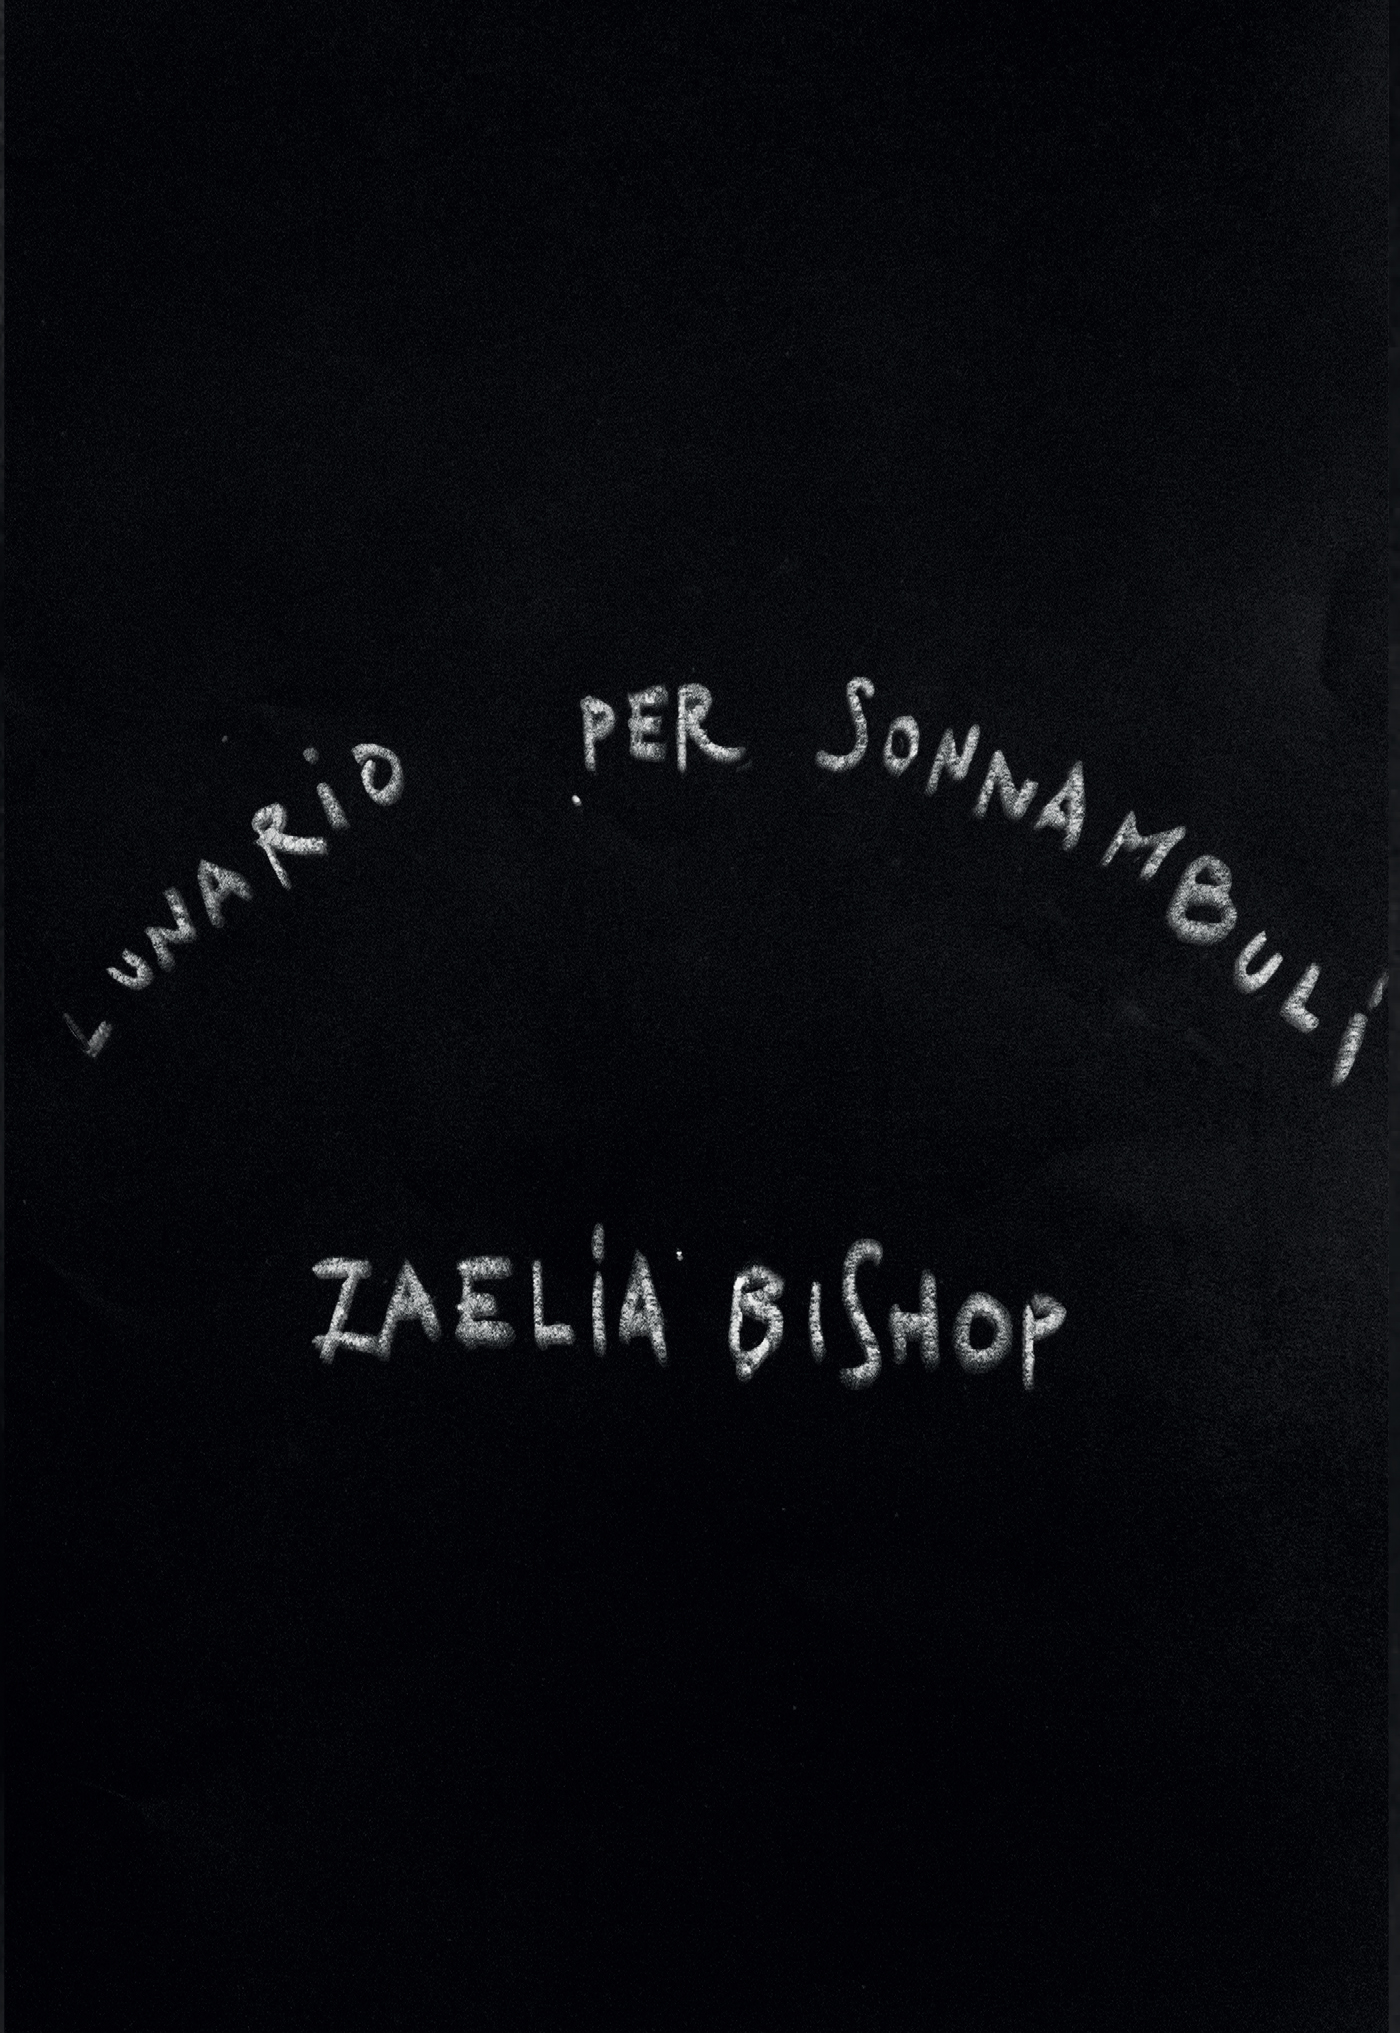 LUNARiO PER SONNAMBULi
ZAELiA BISHOP